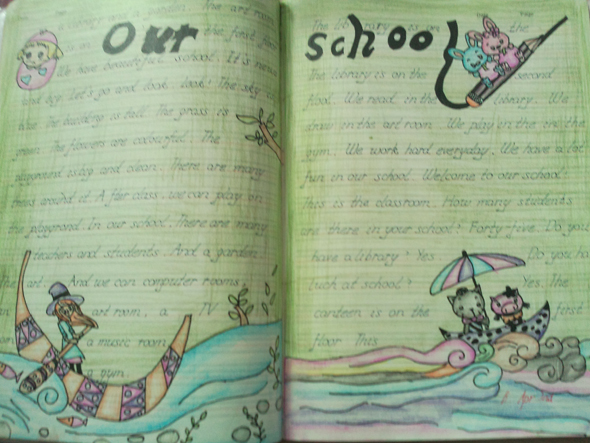 Our school
a library and a garden. The art room
is on the first floor.
We have beautiful school. It's new
and big. Let's go and look. look! The sky is
blue. The building is tall. The grass is
green. The flowers are colourful. The
playground is big and clean. There are many
trees around it. After class, we can play on
the playgrond. In our school. There are many
teachers and students. And a garden
art. And we can computer rooms,
art room, a TV
a music room
a gym.
The library is on the
The library is on the second
floor. We read in the library. We
draw in the art room. We play in the
gym. We work hard everyday. We have a lot
fun in our school. Welcome to our school!
This is the classroom. How many students
are there in your school? Forty-five. Do you
have a library? Yes Do you ha
luch at school? Yes. The
canteen is on the first
floor This